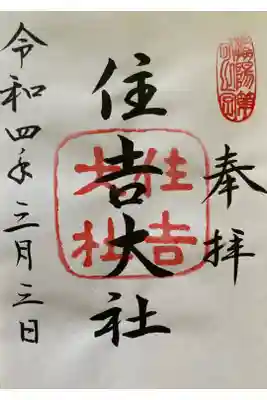 奉拝
住吉大社
住吉
大社
令和四年三月三日